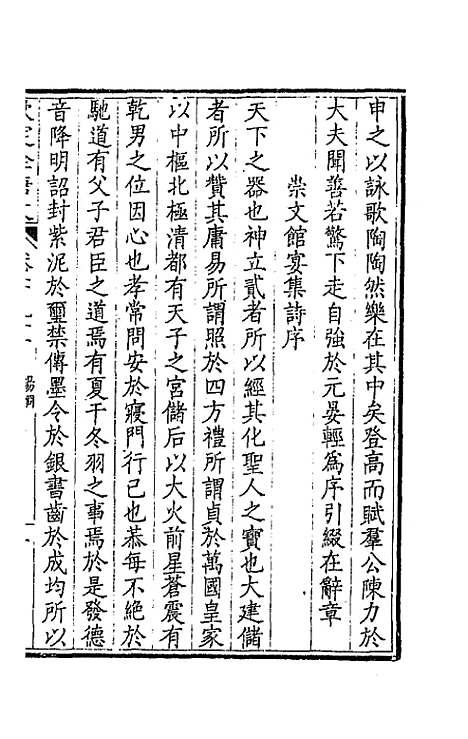 申之以詠歌陶陶然樂在其中矣登高而賦羣公陳力於
大夫聞善若驚下走自強於元晏輕為序引綴在辭章
崇文館宴集詩序
天下之器也神立貳者所以經其化聖人之寶也大建儲
者所以贊其庸易所謂照於四方禮所謂貞於萬國皇家
以中樞北極清都有天子之宮儲后以大火前星蒼震有
乾男之位因心也孝常問安於寢門行已也恭每不絕於
馳道有父子君臣之道焉有夏干冬羽之事焉於是發德
音降明詔封紫泥於璽禁傳墨令於銀書齒於成均所以